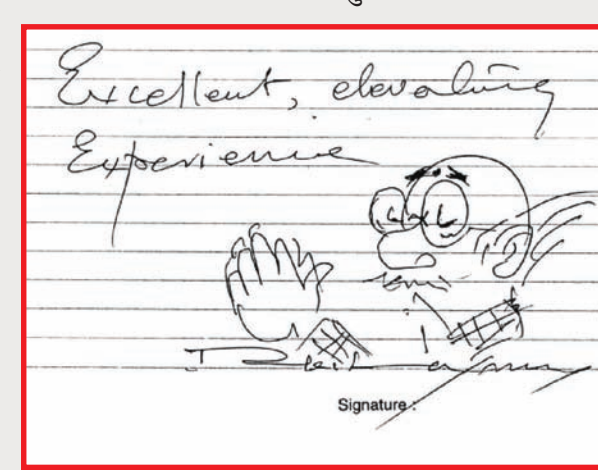 Excellent, elevating
Experience
Signature :